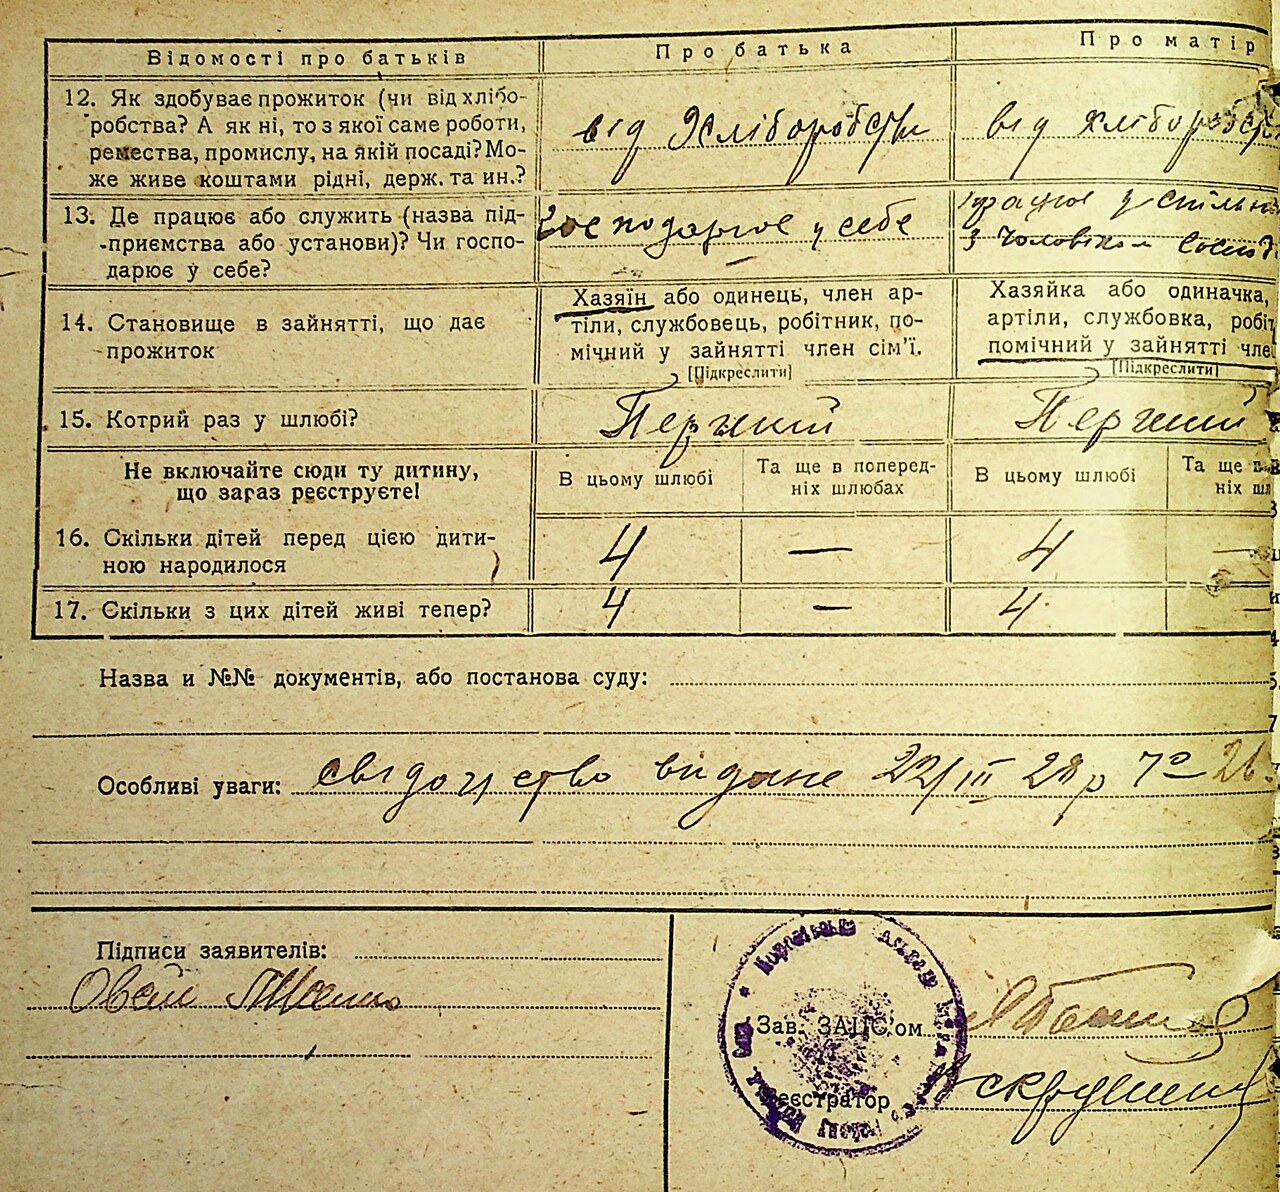 Відомості про батьків
Про батька
Про матір
12. Як здобуває прожиток (чи від хлібо-
робства? А як ні, то з якої саме роботи,
ремества, промислу, на якій посаді? Мо-
же живе коштами рідні, держ. та ин.?
від хліборобства
від хліборобст
13. Де працює або служить (назва під-
приємства або установи)? Чи госпо-
дарює у себе?
Господарює у себе
працює у спільн
з чоловіком господ
14. Становище в зайнятті, що дає
прожиток
Хазяїн або одинець, член ар-
тіли, службовець, робітник, по-
мічний у зайнятті член сім'ї.
[Підкреслити]
Хазяйка або одиначка,
артіли, службовка, робіт
помічний у зайнятті чле
[Підкреслити]
15. Котрий раз у шлюбі?
Перший
Перший
Не включайте сюди ту дитину,
що зараз реєструєте!
В цьому шлюбі
Та ще в поперед-
ніх шлюбах
В цьому шлюбі
Та ще в
ніх шл
16. Скільки дітей перед цією дити-
ною народилося
4
—
4
—
17. Скільки з цих дітей живі тепер?
4
—
4
—
Назва и №№ документів, або постанова суду:
Особливі уваги: свідочство видане 22/III 28 р № 26
Підписи заявителів:
Овсій
Зав. ЗАГС'ом
Реєстратор